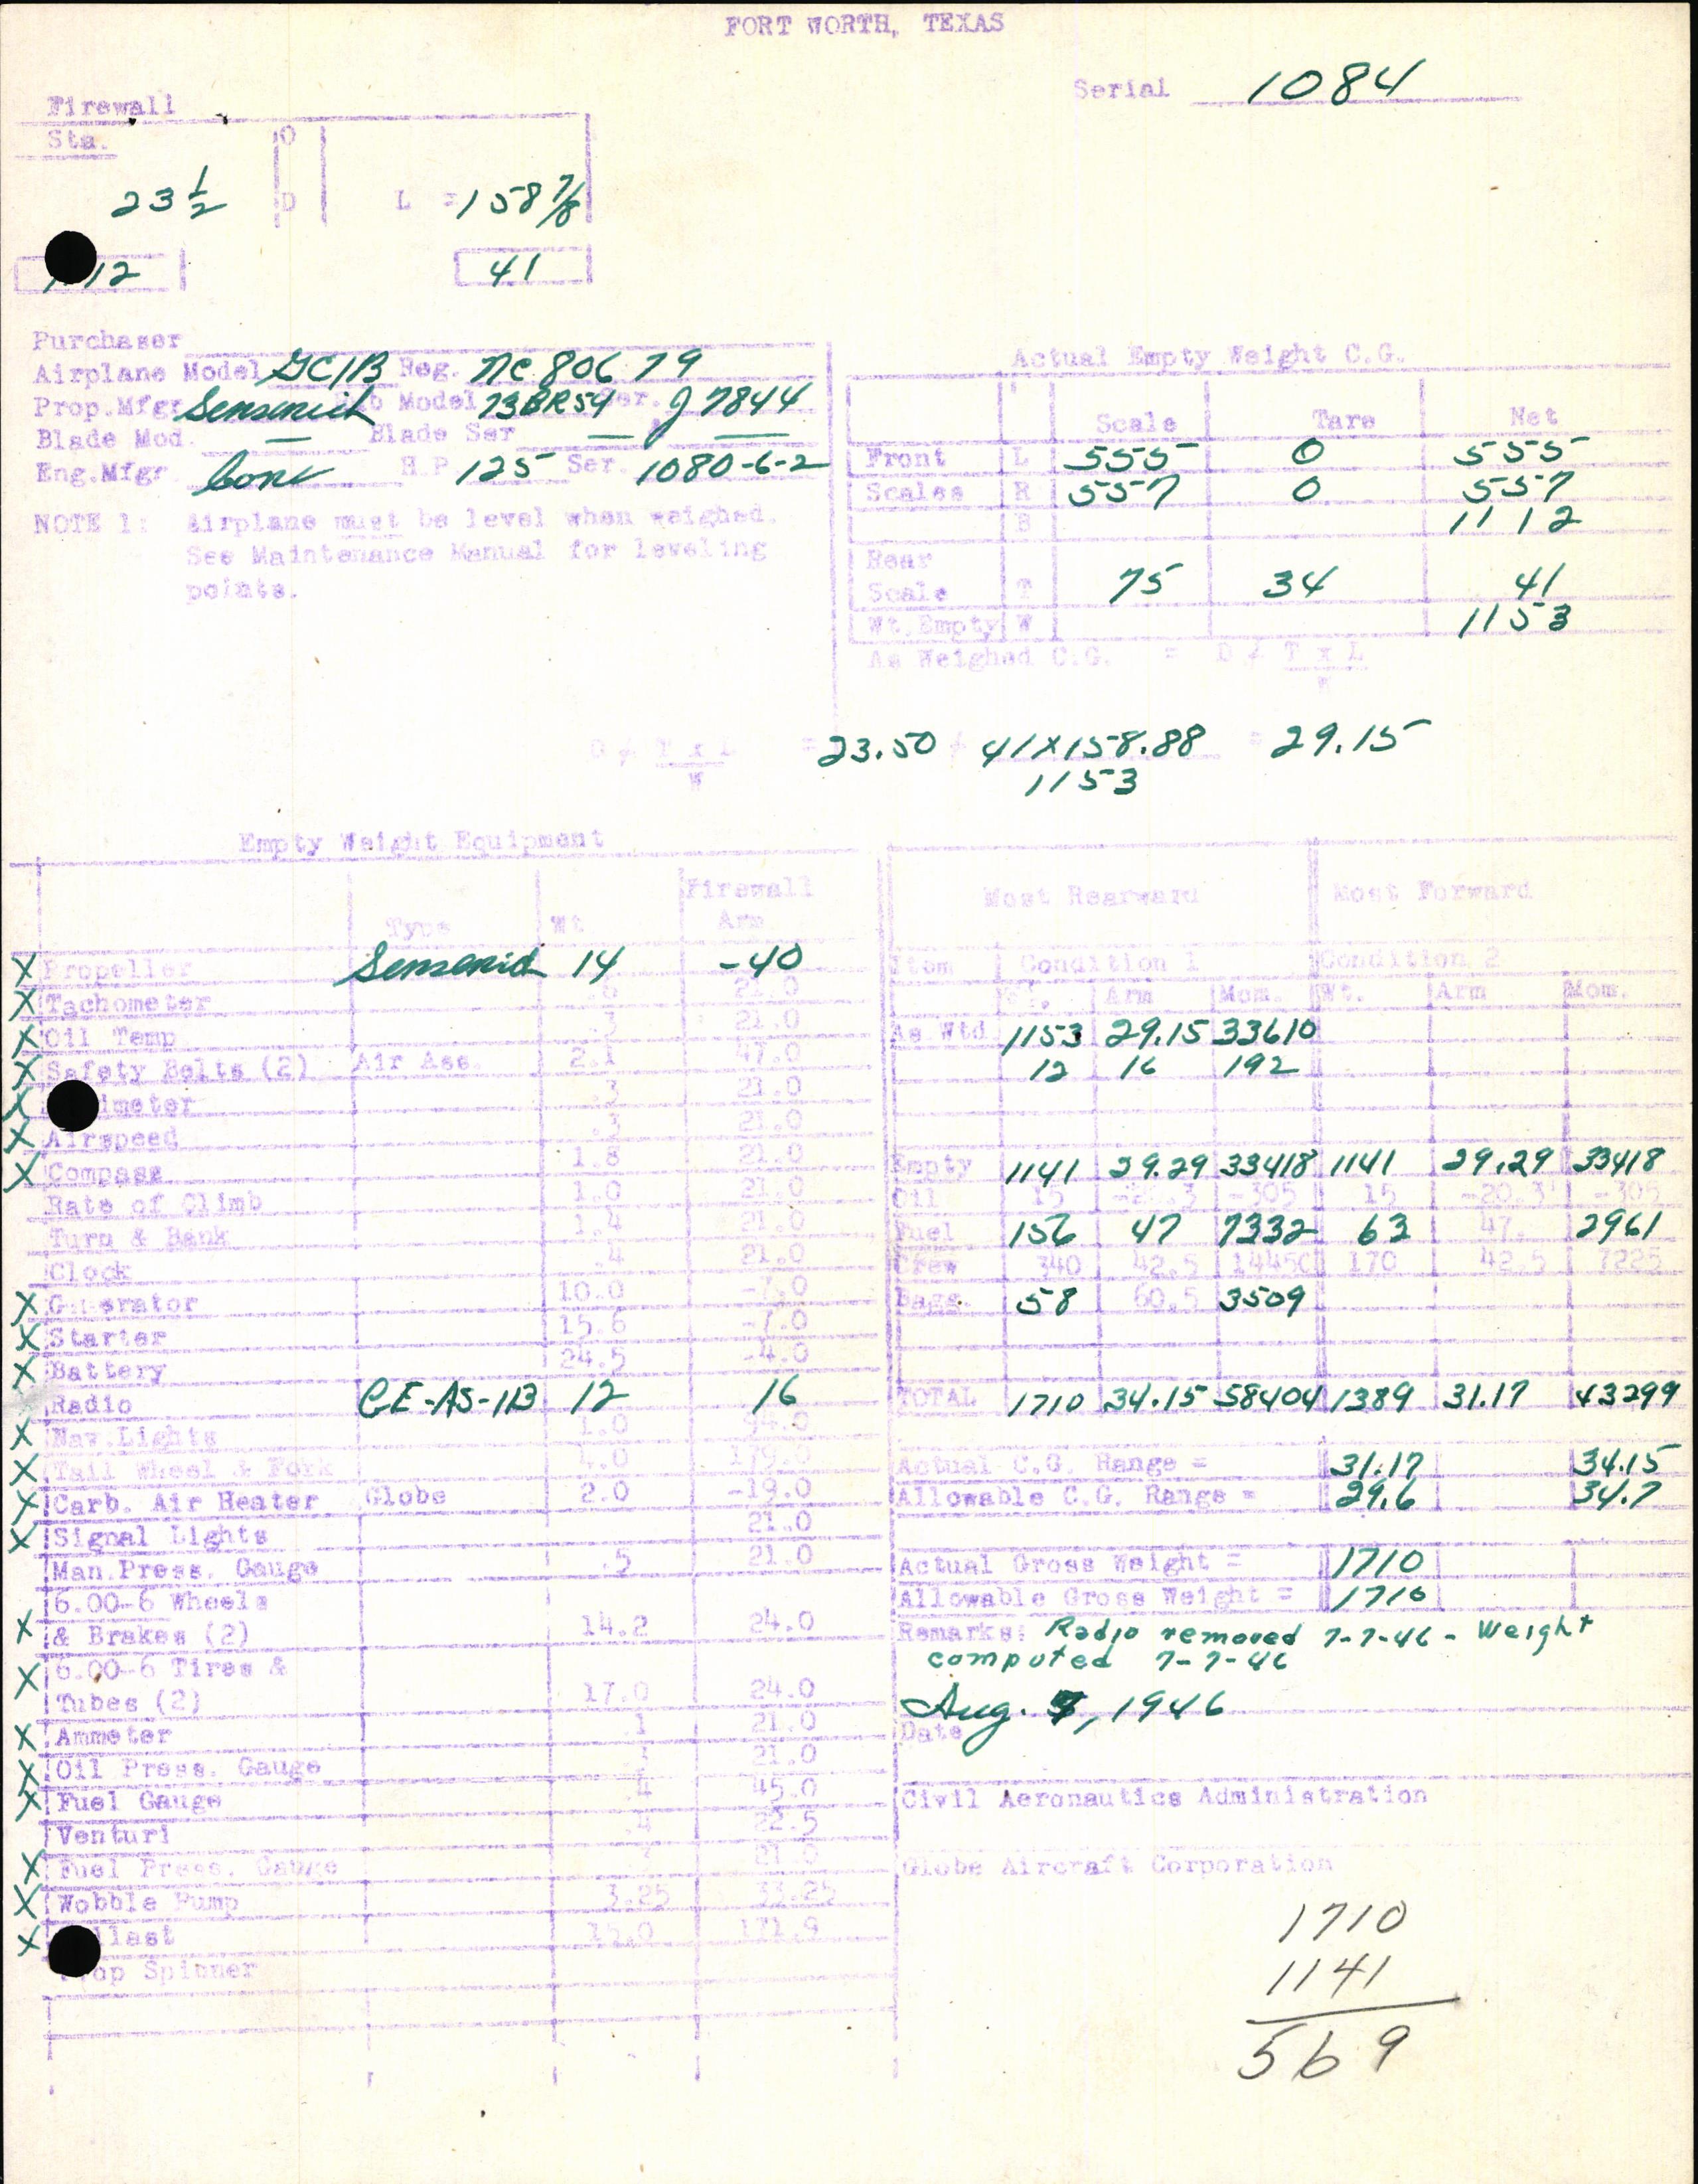 FORT WORTH, TEXAS
Serial 1084
Firewall
Sta.
O
23 1/2 D L = 158 7/8
1112 41
Purchaser
Airplane Model GC1B Reg. NC 80679
Prop.Mfgr Sensenich Hub Model 73BR54 Ser. J7844
Blade Mod. — Blade Ser — —
Eng.Mfgr Cont H.P. 125 Ser. 1080-6-2
NOTE 1: Airplane must be level when weighed.
See Maintenance Manual for leveling
points.
Actual Empty Weight C.G.
Scale Tare Net
Front L 555 0 555
Scales R 557 0 557
B 1112
Rear
Scale T 75 34 41
Wt.Empty W 1153
As Weighed C.G. = D ≠ T x L
W
D ≠ T x L = 23.50 ≠ 41X158.88 = 29.15
W 1153
Empty Weight Equipment
Type Wt. Firewall Arm
X Propeller Sensenich 14 -40
X Tachometer .6 21.0
X Oil Temp .3 21.0
X Safety Belts (2) Air Ass. 2.1 47.0
X Altimeter .3 21.0
X Airspeed .3 21.0
X Compass 1.8 21.0
Rate of Climb 1.0 21.0
Turn & Bank 1.4 21.0
Clock .4 21.0
X Generator 10.0 -7.0
X Starter 15.6 -7.0
X Battery 24.5 -4.0
Radio GE-AS-1B 12 16
X Nav.Lights 1.0
X Tail Wheel & Fork 4.0 179.0
X Carb. Air Heater Globe 2.0 -19.0
X Signal Lights 21.0
Man.Press. Gauge .5 21.0
6.00-6 Wheels
X & Brakes (2) 14.2 24.0
X 6.00-6 Tires &
Tubes (2) 17.0 24.0
X Ammeter .1 21.0
X Oil Press. Gauge .3 21.0
X Fuel Gauge .4 45.0
Venturi .4 22.5
X Fuel Press. Gauge 21.0
X Wobble Pump 3.25 33.25
X Ballast 15.0 171.9
Prop Spinner
Most Rearward Most Forward
Item Condition 1 Condition 2
Wt. Arm Mom. Wt. Arm Mom.
As Wtd 1153 29.15 33610
12 16 192
Empty 1141 29.29 33418 1141 29.29 33418
Oil 15 -20.3 -305 15 -20.3 -305
Fuel 156 47 7332 63 47. 2961
Crew 340 42.5 14450 170 42.5 7225
Bagg. 58 60.5 3509
TOTAL 1710 34.15 58404 1389 31.17 43299
Actual C.G. Range = 31.17 34.15
Allowable C.G. Range = 29.6 34.7
Actual Gross Weight = 1710
Allowable Gross Weight = 1710
Remarks: Radio removed 7-7-46 - Weight
computed 7-7-46
Aug. 7, 1946
Date
Civil Aeronautics Administration
Globe Aircraft Corporation
1710
1141
569